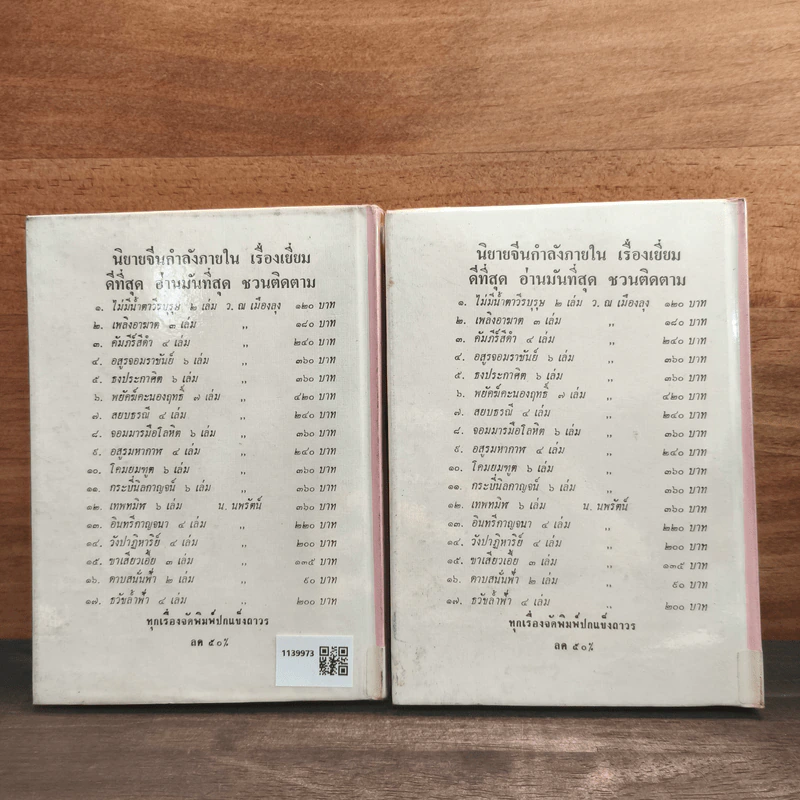 นิยายจีนกำลังภายใน เรื่องเยี่ยม
ดีที่สุด อ่านมันที่สุด ชวนติดตาม
๑. ไม่มีน้ำตาวีรบุรุษ ๒ เล่ม ว. ณ เมืองลุง ๑๒๐ บาท
๒. เพลิงอาฆาต ๓ เล่ม ,, ๑๘๐ บาท
๓. คัมภีร์สีดำ ๔ เล่ม ,, ๒๔๐ บาท
๔. อสูรจอมราชันย์ ๖ เล่ม ,, ๓๖๐ บาท
๕. ธงประกาศิต ๖ เล่ม ,, ๓๖๐ บาท
๖. พยัคฆ์คะนองฤทธิ์ ๗ เล่ม ,, ๔๒๐ บาท
๗. สยบธรณี ๔ เล่ม ,, ๒๔๐ บาท
๘. จอมมารมือโลหิต ๖ เล่ม ,, ๓๖๐ บาท
๙. อสูรมหากาฬ ๔ เล่ม ,, ๒๔๐ บาท
๑๐. โคมยมฑูต ๖ เล่ม ,, ๓๖๐ บาท
๑๑. กระบี่นิลกาญจน์ ๖ เล่ม ,, ๓๖๐ บาท
๑๒. เทพทมิฬ ๖ เล่ม น. นพรัตน์ ๓๖๐ บาท
๑๓. อินทรีกาญจนา ๔ เล่ม ,, ๒๒๐ บาท
๑๔. วังปาฏิหาริย์ ๔ เล่ม ,, ๒๐๐ บาท
๑๕. ชาเสียวเอี้ย ๓ เล่ม ,, ๑๓๕ บาท
๑๖. ดาบสนั่นฟ้า ๒ เล่ม ,, ๙๐ บาท
๑๗. ธวัชล้ำฟ้า ๔ เล่ม ,, ๒๐๐ บาท
ทุกเรื่องจัดพิมพ์ปกแข็งถาวร
ลด ๕๐%
1139973
นิยายจีนกำลังภายใน เรื่องเยี่ยม
ดีที่สุด อ่านมันที่สุด ชวนติดตาม
๑. ไม่มีน้ำตาวีรบุรุษ ๒ เล่ม ว. ณ เมืองลุง ๑๒๐ บาท
๒. เพลิงอาฆาต ๓ เล่ม ,, ๑๘๐ บาท
๓. คัมภีร์สีดำ ๔ เล่ม ,, ๒๔๐ บาท
๔. อสูรจอมราชันย์ ๖ เล่ม ,, ๓๖๐ บาท
๕. ธงประกาศิต ๖ เล่ม ,, ๓๖๐ บาท
๖. พยัคฆ์คะนองฤทธิ์ ๗ เล่ม ,, ๔๒๐ บาท
๗. สยบธรณี ๔ เล่ม ,, ๒๔๐ บาท
๘. จอมมารมือโลหิต ๖ เล่ม ,, ๓๖๐ บาท
๙. อสูรมหากาฬ ๔ เล่ม ,, ๒๔๐ บาท
๑๐. โคมยมฑูต ๖ เล่ม ,, ๓๖๐ บาท
๑๑. กระบี่นิลกาญจน์ ๖ เล่ม ,, ๓๖๐ บาท
๑๒. เทพทมิฬ ๖ เล่ม น. นพรัตน์ ๓๖๐ บาท
๑๓. อินทรีกาญจนา ๔ เล่ม ,, ๒๒๐ บาท
๑๔. วังปาฏิหาริย์ ๔ เล่ม ,, ๒๐๐ บาท
๑๕. ชาเสียวเอี้ย ๓ เล่ม ,, ๑๓๕ บาท
๑๖. ดาบสนั่นฟ้า ๒ เล่ม ,, ๙๐ บาท
๑๗. ธวัชล้ำฟ้า ๔ เล่ม ,, ๒๐๐ บาท
ทุกเรื่องจัดพิมพ์ปกแข็งถาวร
ลด ๕๐%